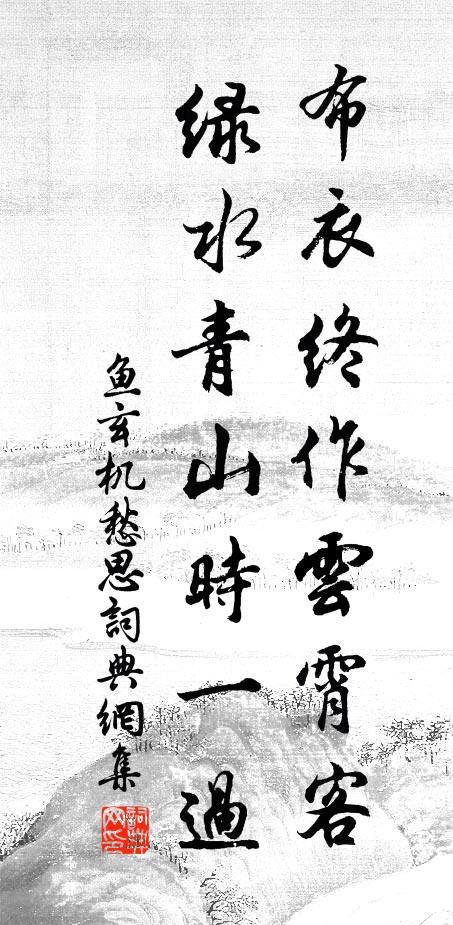 布衣終作雲霄客
绿水青山時一過
鱼玄机愁思詞典網集